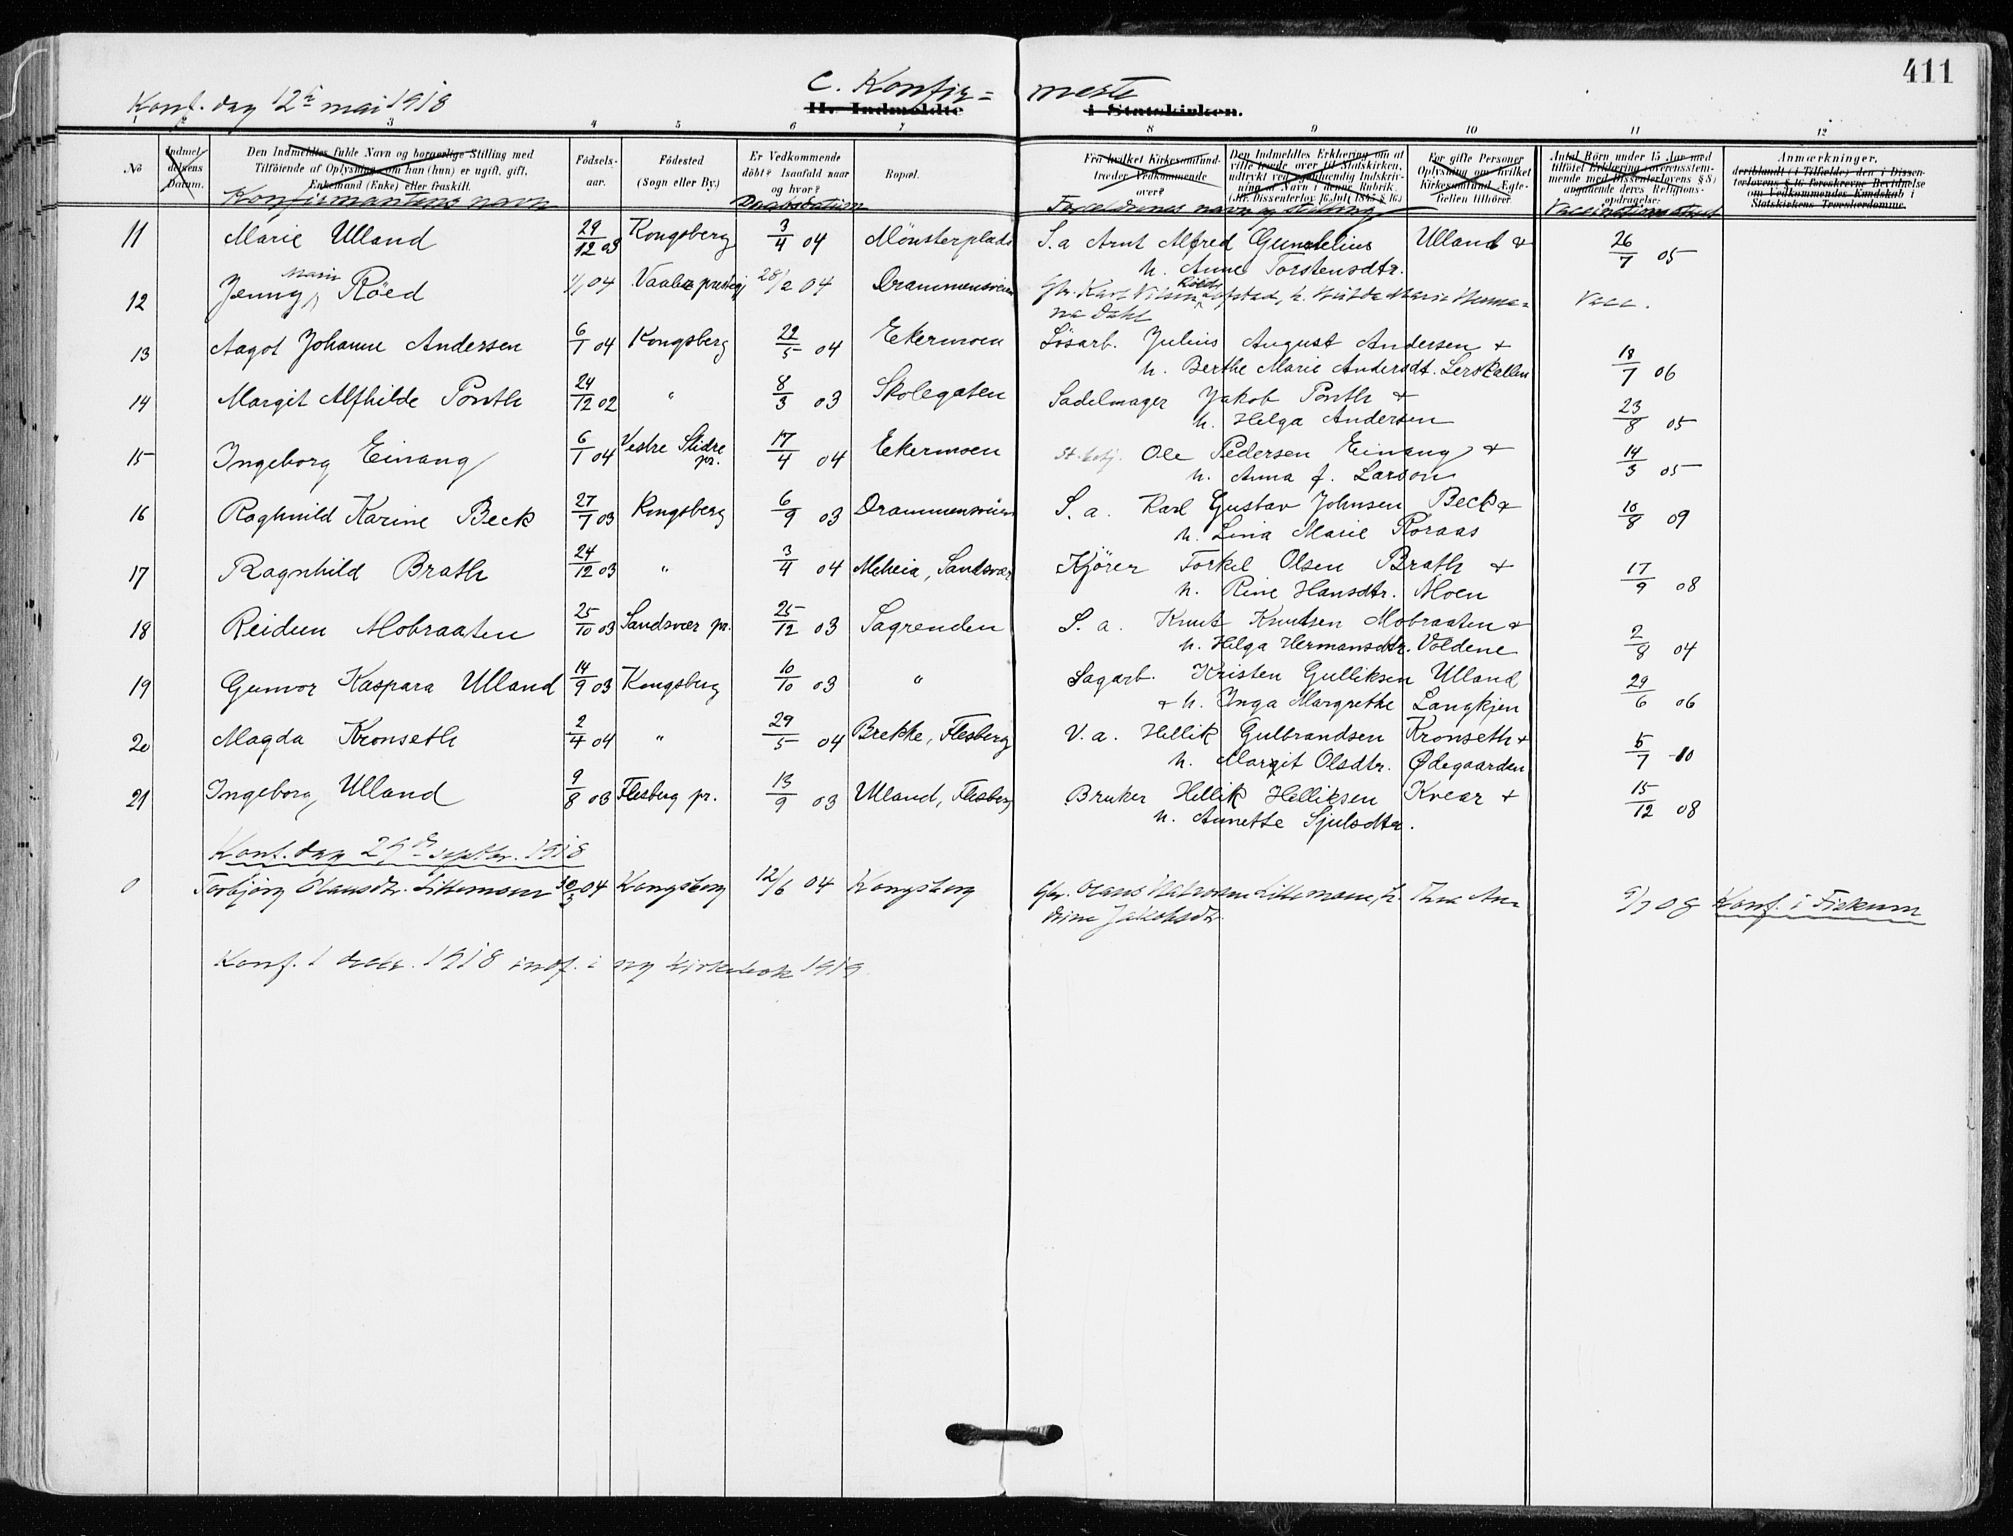 411
C. Konfir= merte
H. Indmeldte i Statskirken.
Konf. dag 12te mai 1918
1 2 3 4 5 6 7 8 9 10 11 12
No
Indmeldelsens Datum.
Den Indmeldtes fulde Navn og borgerlige Stilling med
Tilföiende af Oplysning om han (hun) er ugift, gift,
Enkemand (Enke) eller fraskilt.
Konfirmantens navn
Fødsels-
aar.
Fødested
(Sogn eller By.)
Er Vedkommende
döbt? Isaafald naar
og hvor?
Daabsdatum
Bopæl.
Fra hvilket Kirkesamfund
træder Vedkommende
over?
Forældrenes navn og stilling
Den Indmeldtes Erklæring om at
ville træde over til Statskirken,
udtrykt ved egenhændig Indskriv-
ning af Navn i denne Rubrik
(Jfr. Dissenterlov 16 Juli 1845 § 16.)
For gifte Personer
Oplysning om hvilket
Kirkesamfund Ægte-
fællen tilhører.
Antal Börn under 15 Aar med
tilføiet Erklæring (overensstem-
mende med Dissenterlovens § 8)
angaaende deres Religions-
opdragelse:
Anmærkninger,
deriblandt (i Tilfælde) den i Dissen-
terlovens § 16 foreskrevne Bevidnelse
om Vedkommendes Kundskab i
Statskirkens Troeslærdomme.
11 Marie Ulland 29/12 03 Kongsberg 3/4 04 Mønsterplads S.a Arnt Alfred Gundelius Ulland & 26/7 05
h. Anne Torstensdtr.
12 Jenny Marie Röed 1/1 04 Vaale prestegj 28/2 04 Drammensveien Gbr. Karl Nilsen Röeds h. Hulda Marie Vacc.
Dahl
13 Aagot Johanne Andersen 6/1 04 Kongsberg 22/5 04 Ekermoen Lösarb. Julius August Andersen & 18/7 06
h. Berthe Marie Andersdt. Lerskallen
14 Margit Alfhilde Ponth 24/12 02 " 8/3 03 Skolegaten Sadelmager Jakob Ponth & 23/8 05
h. Helga Andersen
15 Ingeborg Einang 6/1 04 Vestre Slidre pr. 17/4 04 Ekermoen Ole Pedersen Einang & 14/3 05
h. Anna f. Larson
16 Raghnild Karine Beck 27/7 03 Kongsberg 6/9 03 Drammensveien S. a. Karl Gustav Johnsen Beck & 10/8 09
h. Lina Marie Roraas
17 Ragnhild Brath 24/12 03 " 3/4 04 Meheia, Sandsvær Kjörer Torkel Olsen Brath & 17/9 08
h. Rine Hansdtr. Moen
18 Reidun Mobraaten 25/10 03 Sandsvær pr. 25/12 03 Sagrenden S. a. Knut Knutsen Mobraaten & 2/8 04
h. Helga Hermansdtr. Voldene
19 Gunvor Kaspara Ulland 14/9 03 Kongsberg 10/10 03 " Sagarb. Kristen Gulliksen Ulland 29/6 06
& h. Inga Margrethe Langkjen
20 Magda Kronseth 2/4 04 " 29/5 04 Brekke, Flesberg V. a. Hellik Gulbrandsen Kronseth & 5/7 10
h. Margit Olsdtr. Ødegaarden
21 Ingeborg Ulland 9/8 03 Flesberg pr. 13/9 03 Ulland, Flesberg Bruker Hellik Helliksen Kvear & 15/12 08
h. Annette Sjulsdtr.
Konf. dag 29de septbr. 1918
0 Torbjörg Olausdtr. Littemoen 30/3 04 Kongsberg 12/6 04 Kongsberg Gbr. Littemoen, h. Thea An-
drine Jakobsdtr. 9/7 08 Konf. i Fiskum
Konf. 1 decbr. 1918 indf. i ny kirkebok 1919